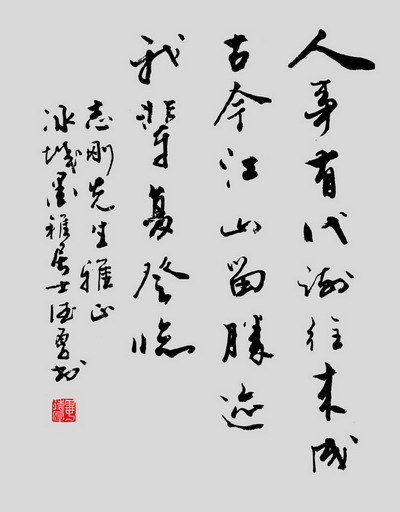 人事有代谢往来成
古今江山留勝迹
我辈复登临
志刚先生雅正
冰城墨雅居士勇书